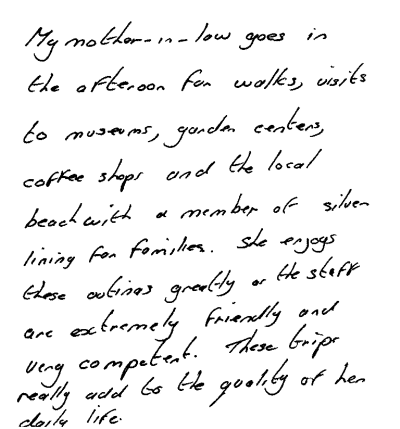 My mother-in-law goes in
the afternoon for walks, visits
to museums, garden centers,
coffee shops and the local
beach with a member of silver
lining for families. She enjoys
these outings greatly as the staff
are extremely friendly and
very competent. These trips
really add to the quality of her
daily life.